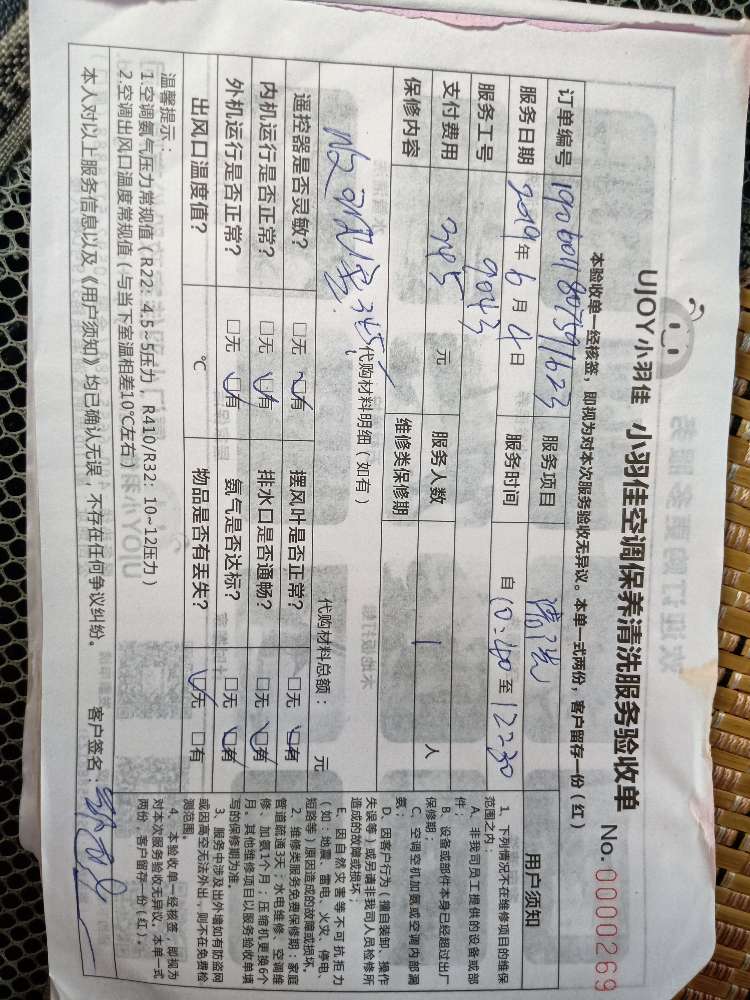 UJOY小羽佳 小羽佳空调保养清洗服务验收单 No.0000269
本验收单一经核签，即视为对本次服务验收无异议。本单一式两份，客户留存一份（红）
订单编号 服务项目 清洗
服务日期 2019年6月4日 服务时间 自10:40至12:30
服务工号 9043
支付费用 345 元 服务人数 1 人
保修内容 维修类保修期
代购材料明细（如有） 代购材料总额： 元
345
遥控器是否灵敏? □无 □有 摆风叶是否正常? □无 □有
内机运行是否正常? □无 □有 排水口是否通畅? □无 □有
外机运行是否正常? □无 □有 氨气是否达标? □无 □有
出风口温度值? ℃ 物品是否有丢失? □无 □有
温馨提示：
1.空调氨气压力常规值（R22：4.5~5压力，R410/R32：10~12压力）
2.空调出风口温度常规值（与当下室温相差10℃左右）
本人对以上服务信息以及《用户须知》均已确认无误，不存在任何争议纠纷。 客户签名：
用户须知
1、下列情况不在维修项目的维保
范围之内：
A、非我司员工提供的设备或部
件；
B、设备或部件本身已经超过出厂
保修期；
C、空调空机加氨或空调内部漏
氨；
D、因客户行为（擅自装卸、操作
失误等）或另请非我司人员检修所
造成的故障或损坏；
E、因自然灾害等不可抗拒力
（如：地震、雷电、火灾、停电、
短路等）原因造成的故障或损坏。
2、维修类服务免费保修期：家庭
管道疏通3天、水电维修、空调维
修、加氨1个月；压缩机更换6个
月。其他维修项目以服务验收单填
写的保修期为准。
3、服务中涉及出外墙如有防盗网
或因高空无法外出，则不在免费检
测范围。
4、本验收单一经核签，即视为
对本次服务验收无异议。本单一式
两份，客户留存一份（红）。